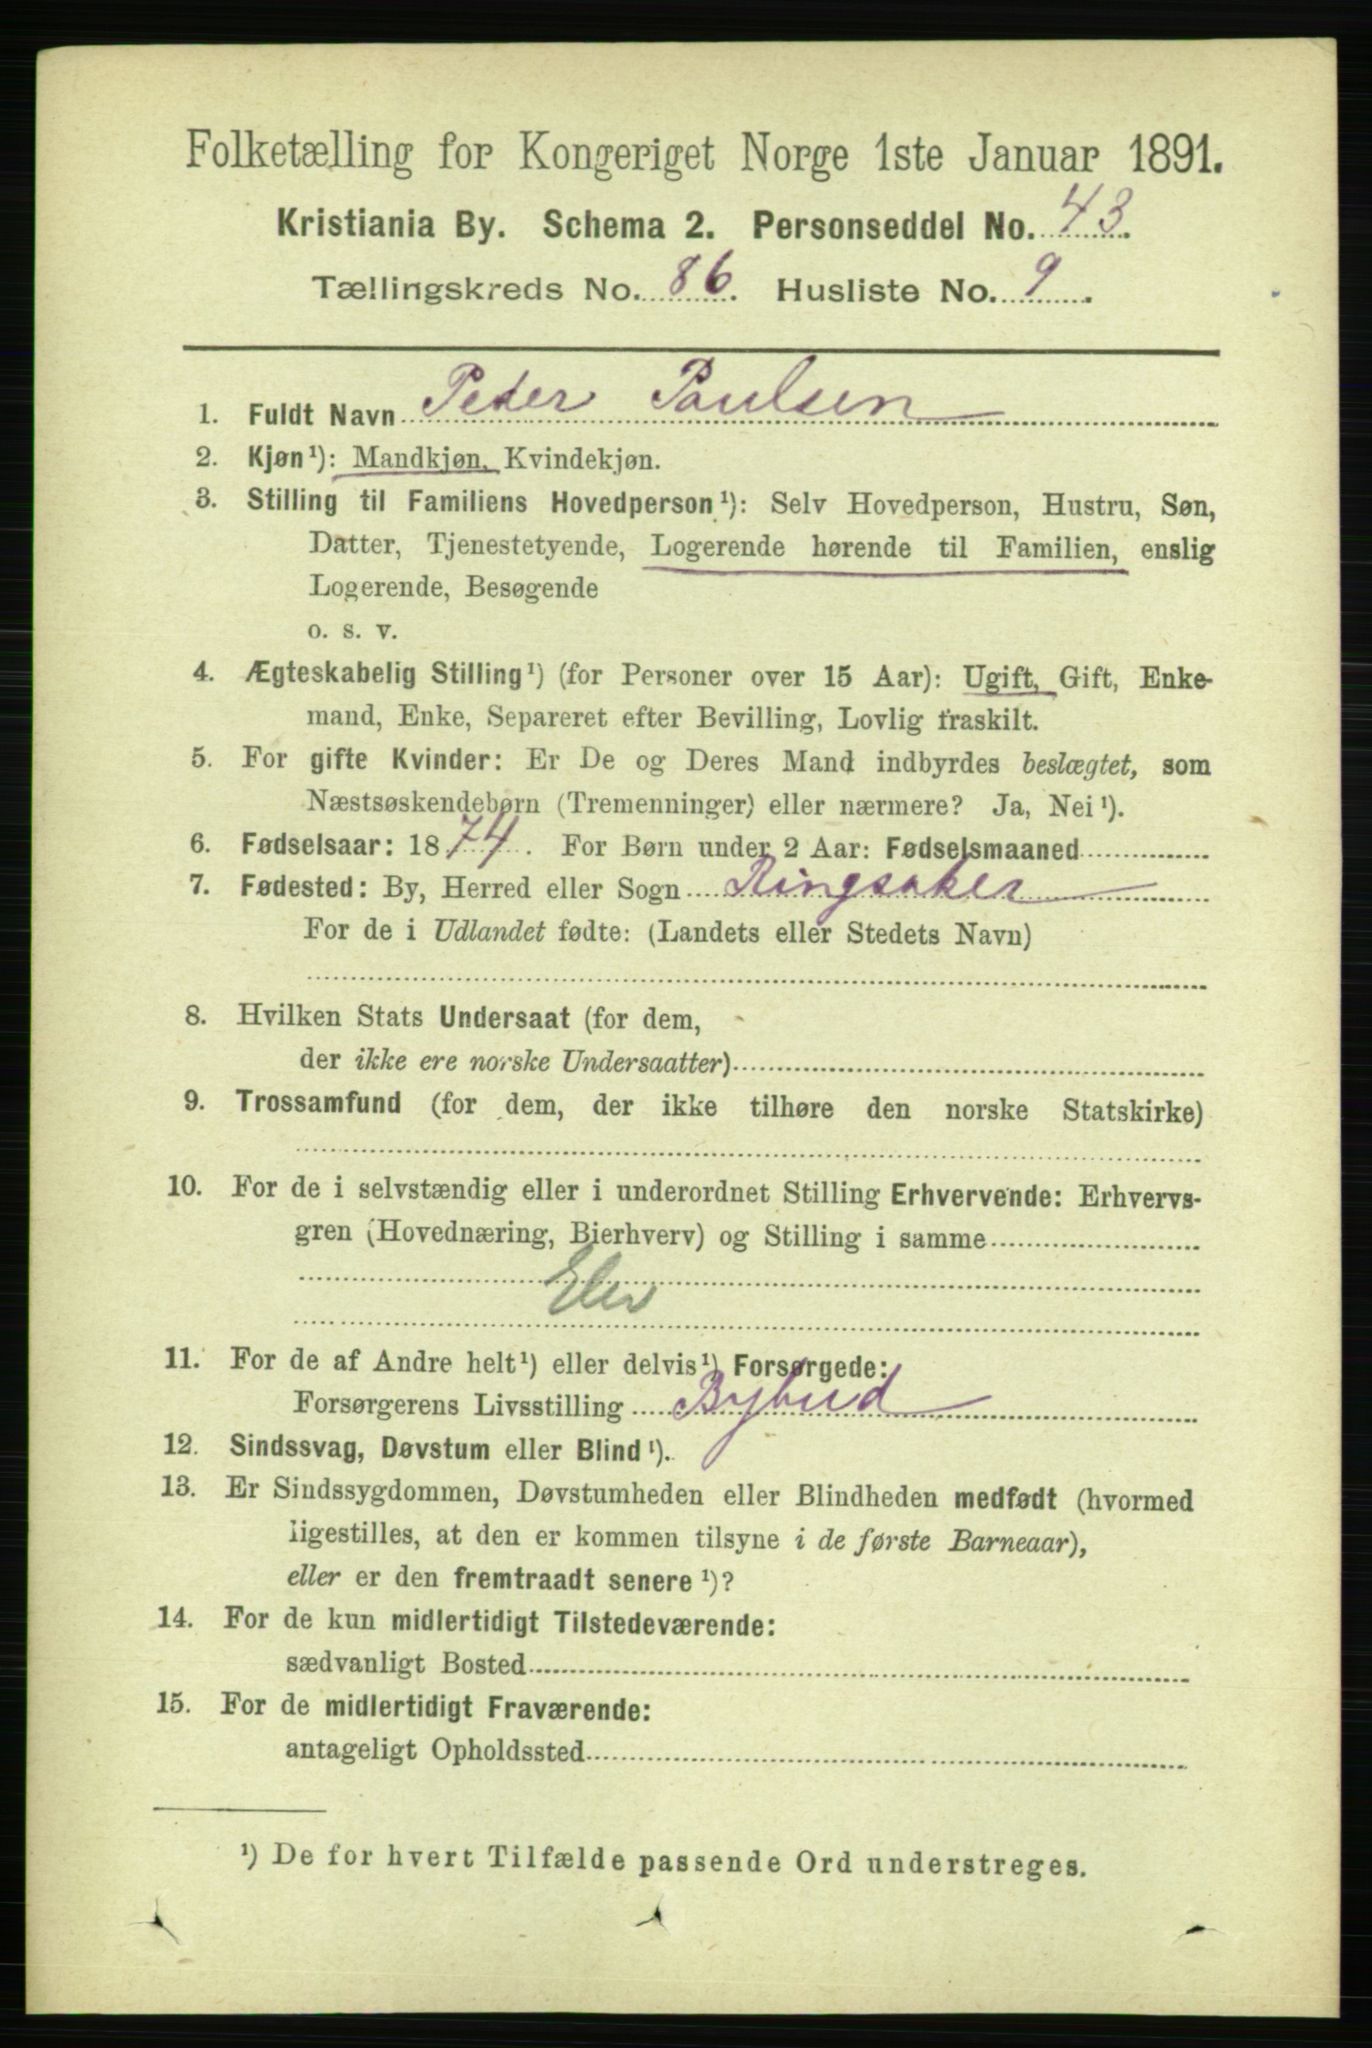 Folketælling for Kongeriget Norge 1ste Januar 1891.
Kristiania By. Schema 2. Personseddel No. 43.
Tællingskreds No. 86. Husliste No. 9.
1. Fuldt Navn Peter Paulsen
2. Kjøn¹): Mandkjøn, Kvindekjøn.
3. Stilling til Familiens Hovedperson¹): Selv Hovedperson, Hustru, Søn,
Datter, Tjenestetyende, Logerende hørende til Familien, enslig
Logerende, Besøgende
o. s. v.
4. Ægteskabelig Stilling¹) (for Personer over 15 Aar): Ugift, Gift, Enke-
mand, Enke, Separeret efter Bevilling, Lovlig fraskilt.
5. For gifte Kvinder: Er De og Deres Mand indbyrdes beslægtet, som
Næstsøskendebørn (Tremenninger) eller nærmere? Ja, Nei¹).
6. Fødselsaar: 1874. For Børn under 2 Aar: Fødselsmaaned
7. Fødested: By, Herred eller Sogn Ringsaker
For de i Udlandet fødte: (Landets eller Stedets Navn)
8. Hvilken Stats Undersaat (for dem,
der ikke ere norske Undersaatter)
9. Trossamfund (for dem, der ikke tilhøre den norske Statskirke)
10. For de i selvstændig eller i underordnet Stilling Erhvervende: Erhvervs-
gren (Hovednæring, Bierhverv) og Stilling i samme
Elev
11. For de af Andre helt¹) eller delvis¹) Forsørgede:
Forsørgerens Livsstilling Bybud
12. Sindssvag, Døvstum eller Blind¹).
13. Er Sindssygdommen, Døvstumheden eller Blindheden medfødt (hvormed
ligestilles, at den er kommen tilsyne i de første Barneaar),
eller er den fremtraadt senere¹)?
14. For de kun midlertidigt Tilstedeværende:
sædvanligt Bosted
15. For de midlertidigt Fraværende:
antageligt Opholdssted
¹) De for hvert Tilfælde passende Ord understreges.